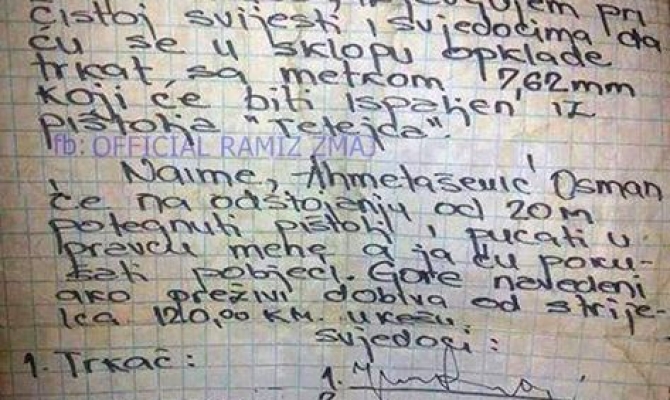 pri
čistoj svijesti i svjedocima da
ću se u sklopu opklade
trkat sa metkom 7,62mm
koji će biti ispaljen iz
pištolja "Tetejca".
fb: OFFICIAL RAMIZ ZMAJ
Naime, Ahmetašević Osman
će na odstojanju od 20m
potegnuti pištolj i pucati u
pravcu mene a ja ću poku-
šati pobjeći. Gore navedeni
ako preživi dobiva od strije-
lca 120,00 KM.
svjedoci:
1. Trkač:
1.